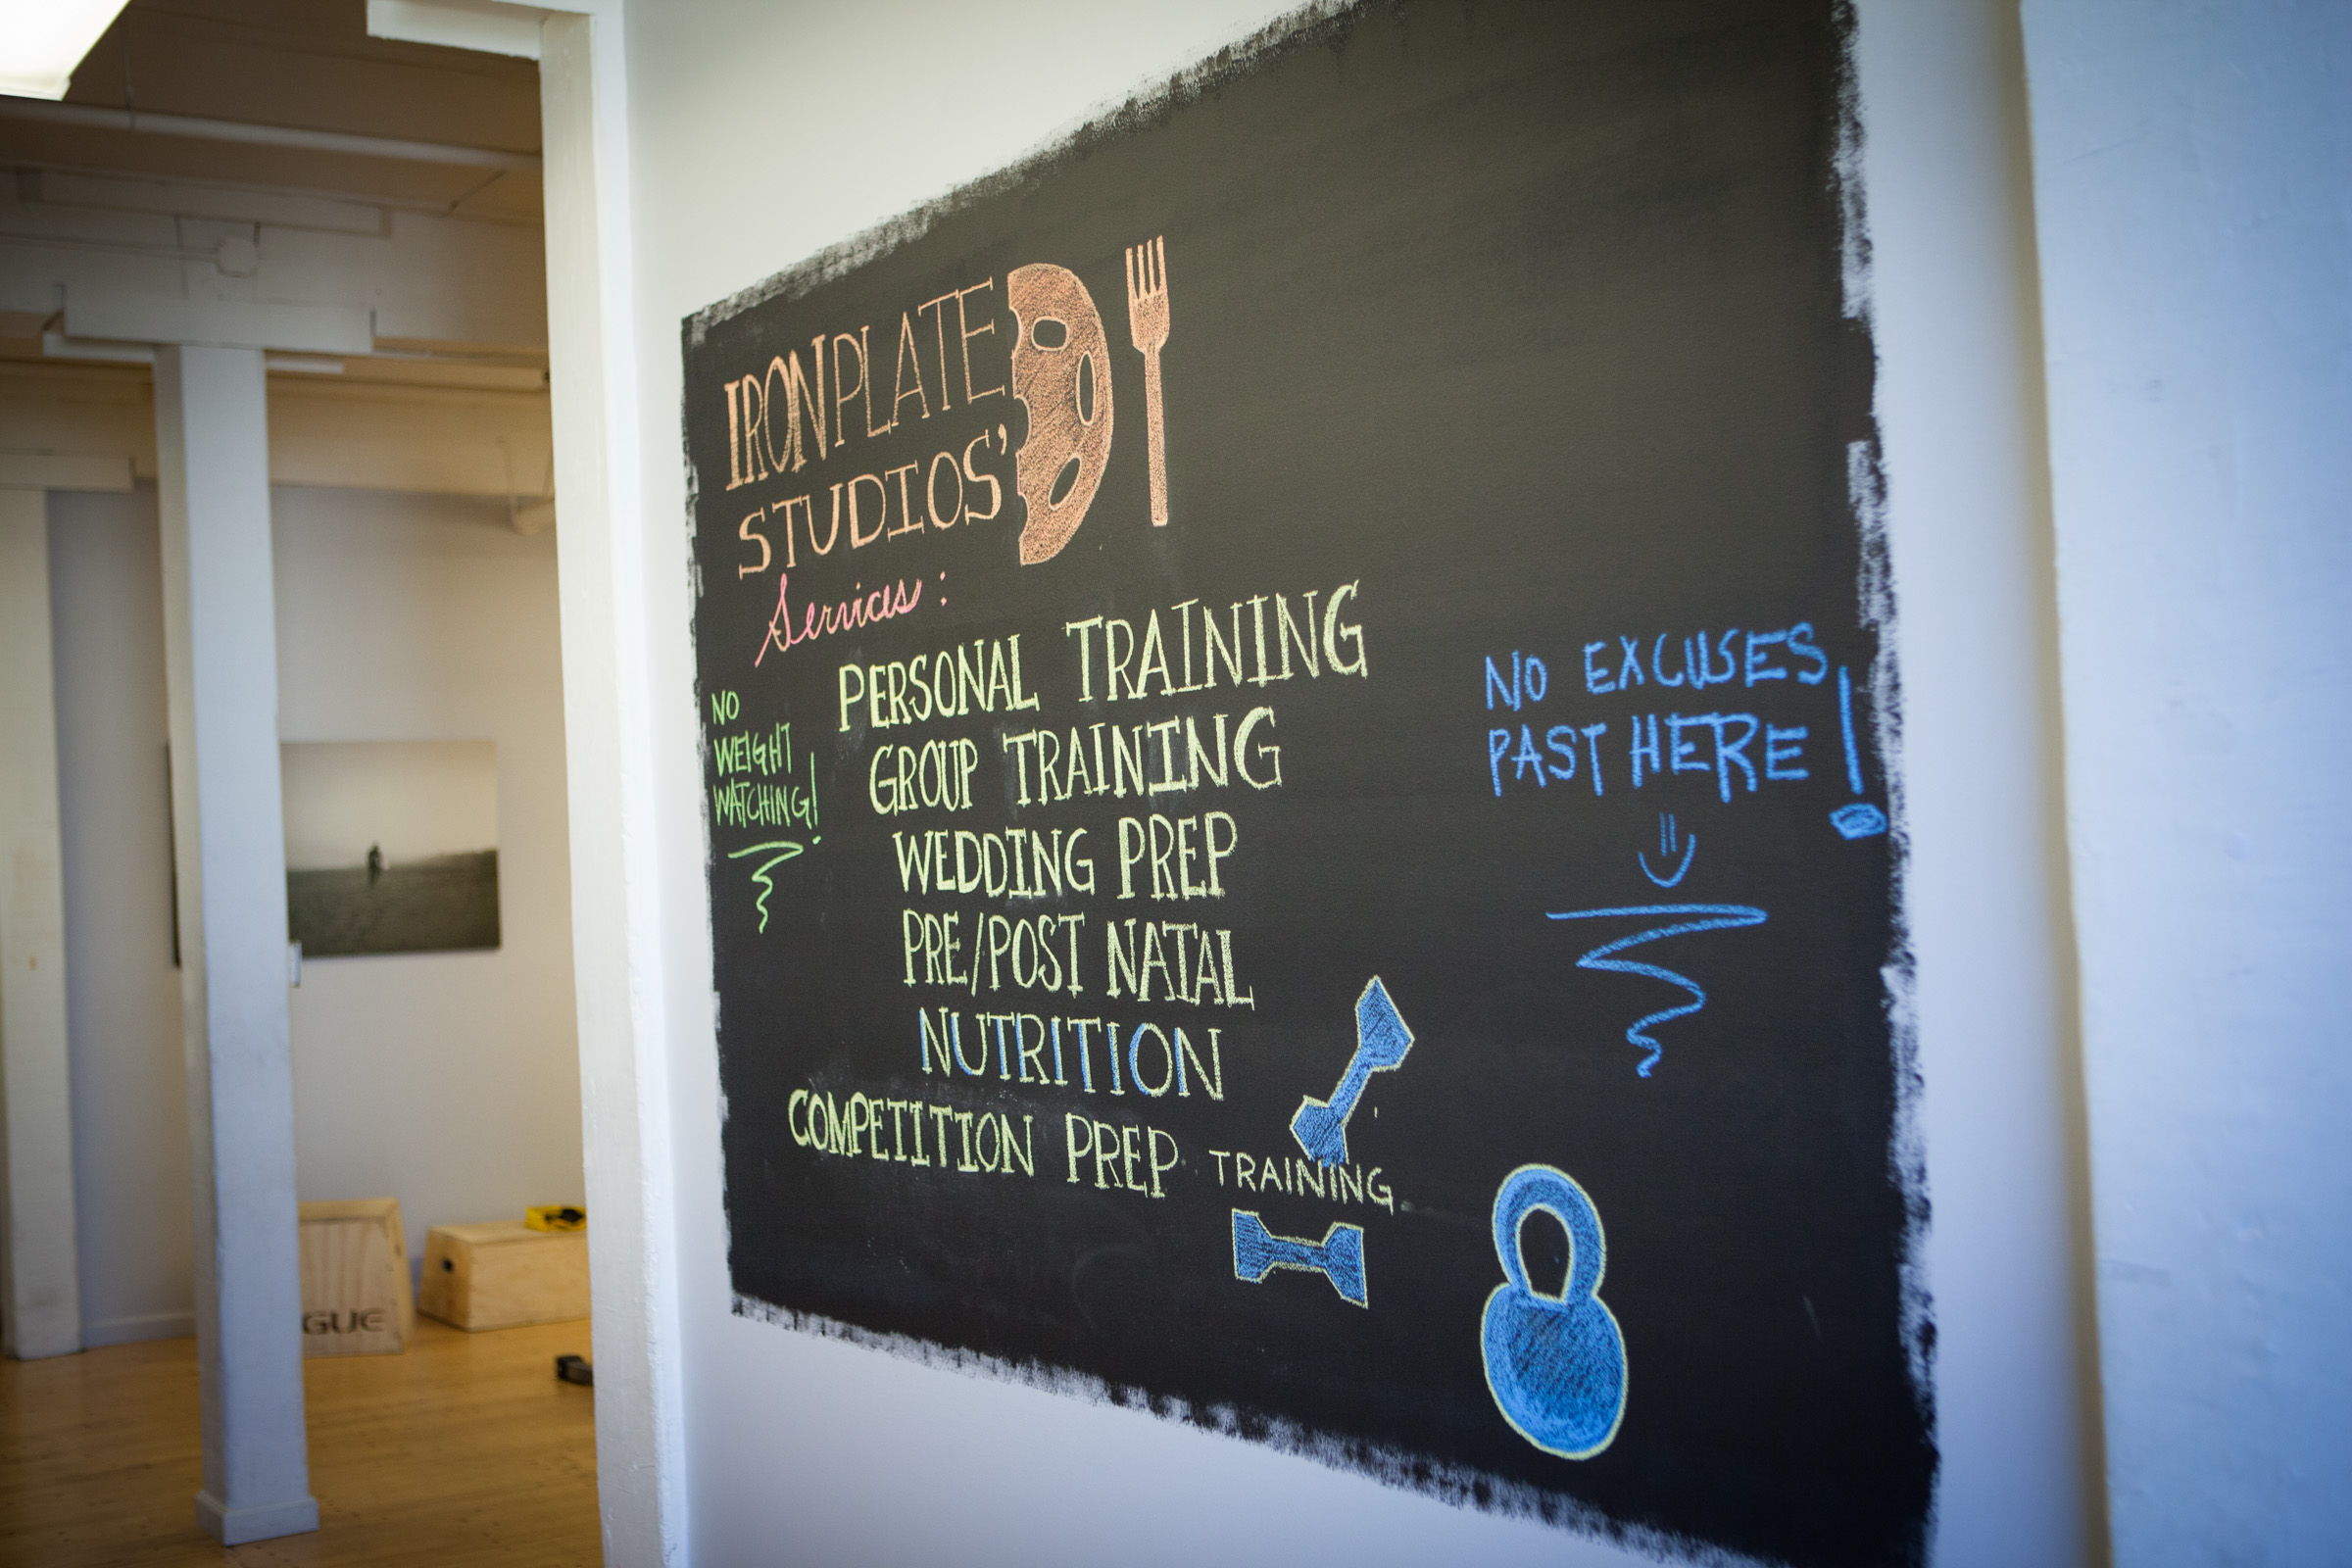 IRONPLATE
STUDIOS'
Services:
PERSONAL TRAINING
GROUP TRAINING
WEDDING PREP
PRE/POST NATAL
NUTRITION
COMPETITION PREP TRAINING
NO
WEIGHT
WATCHING!
NO EXCUSES
PAST HERE!
GUE